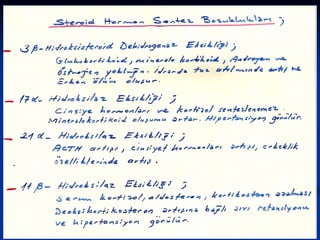 Steroid Hormon Sentez Bozuklukları ;
— 3β-Hidroksisteroid Dehidrogenaz Eksikliği ;
Glukokortikoid, mineralo kortikoid, Androjen ve
östrojen yokluğu. İdrarda tuz atılımında artış ve
Erken ölüm oluşur.
— 17α- Hidroksilaz Eksikliği ;
Cinsiye hormonları ve kortizol sentezlenemez.
Mineralokortikoid oluşumu artar. Hipertansiyon görülür.
— 21α- Hidroksilaz Eksikliği ;
ACTH artışı, cinsiyet hormonları artışı, erkeklik
özelliklerinde artış.
— 11β- Hidroksilaz Eksikliği ;
Serum kortizol, aldosteron, kortikosteron azalması
Deoksikortikosteron artışına bağlı sıvı retansiyonu
ve hipertansiyon görülür.